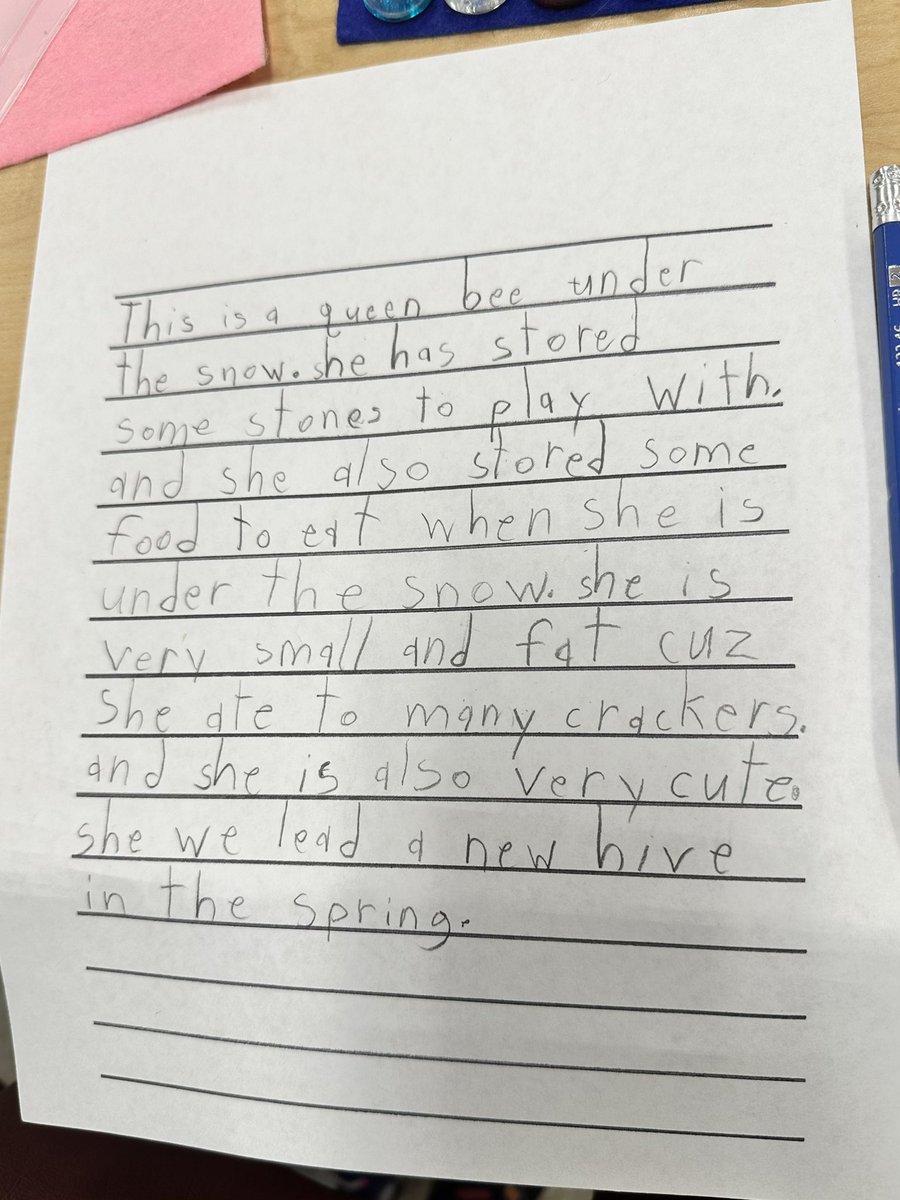 This is a queen bee under
the snow. she has stored
some stones to play with.
and she also stored some
food to eat when she is
under the snow. she is
very small and fat cuz
She ate to many crackers.
and she is also very cute.
she we lead a new hive
in the spring.
HB 2